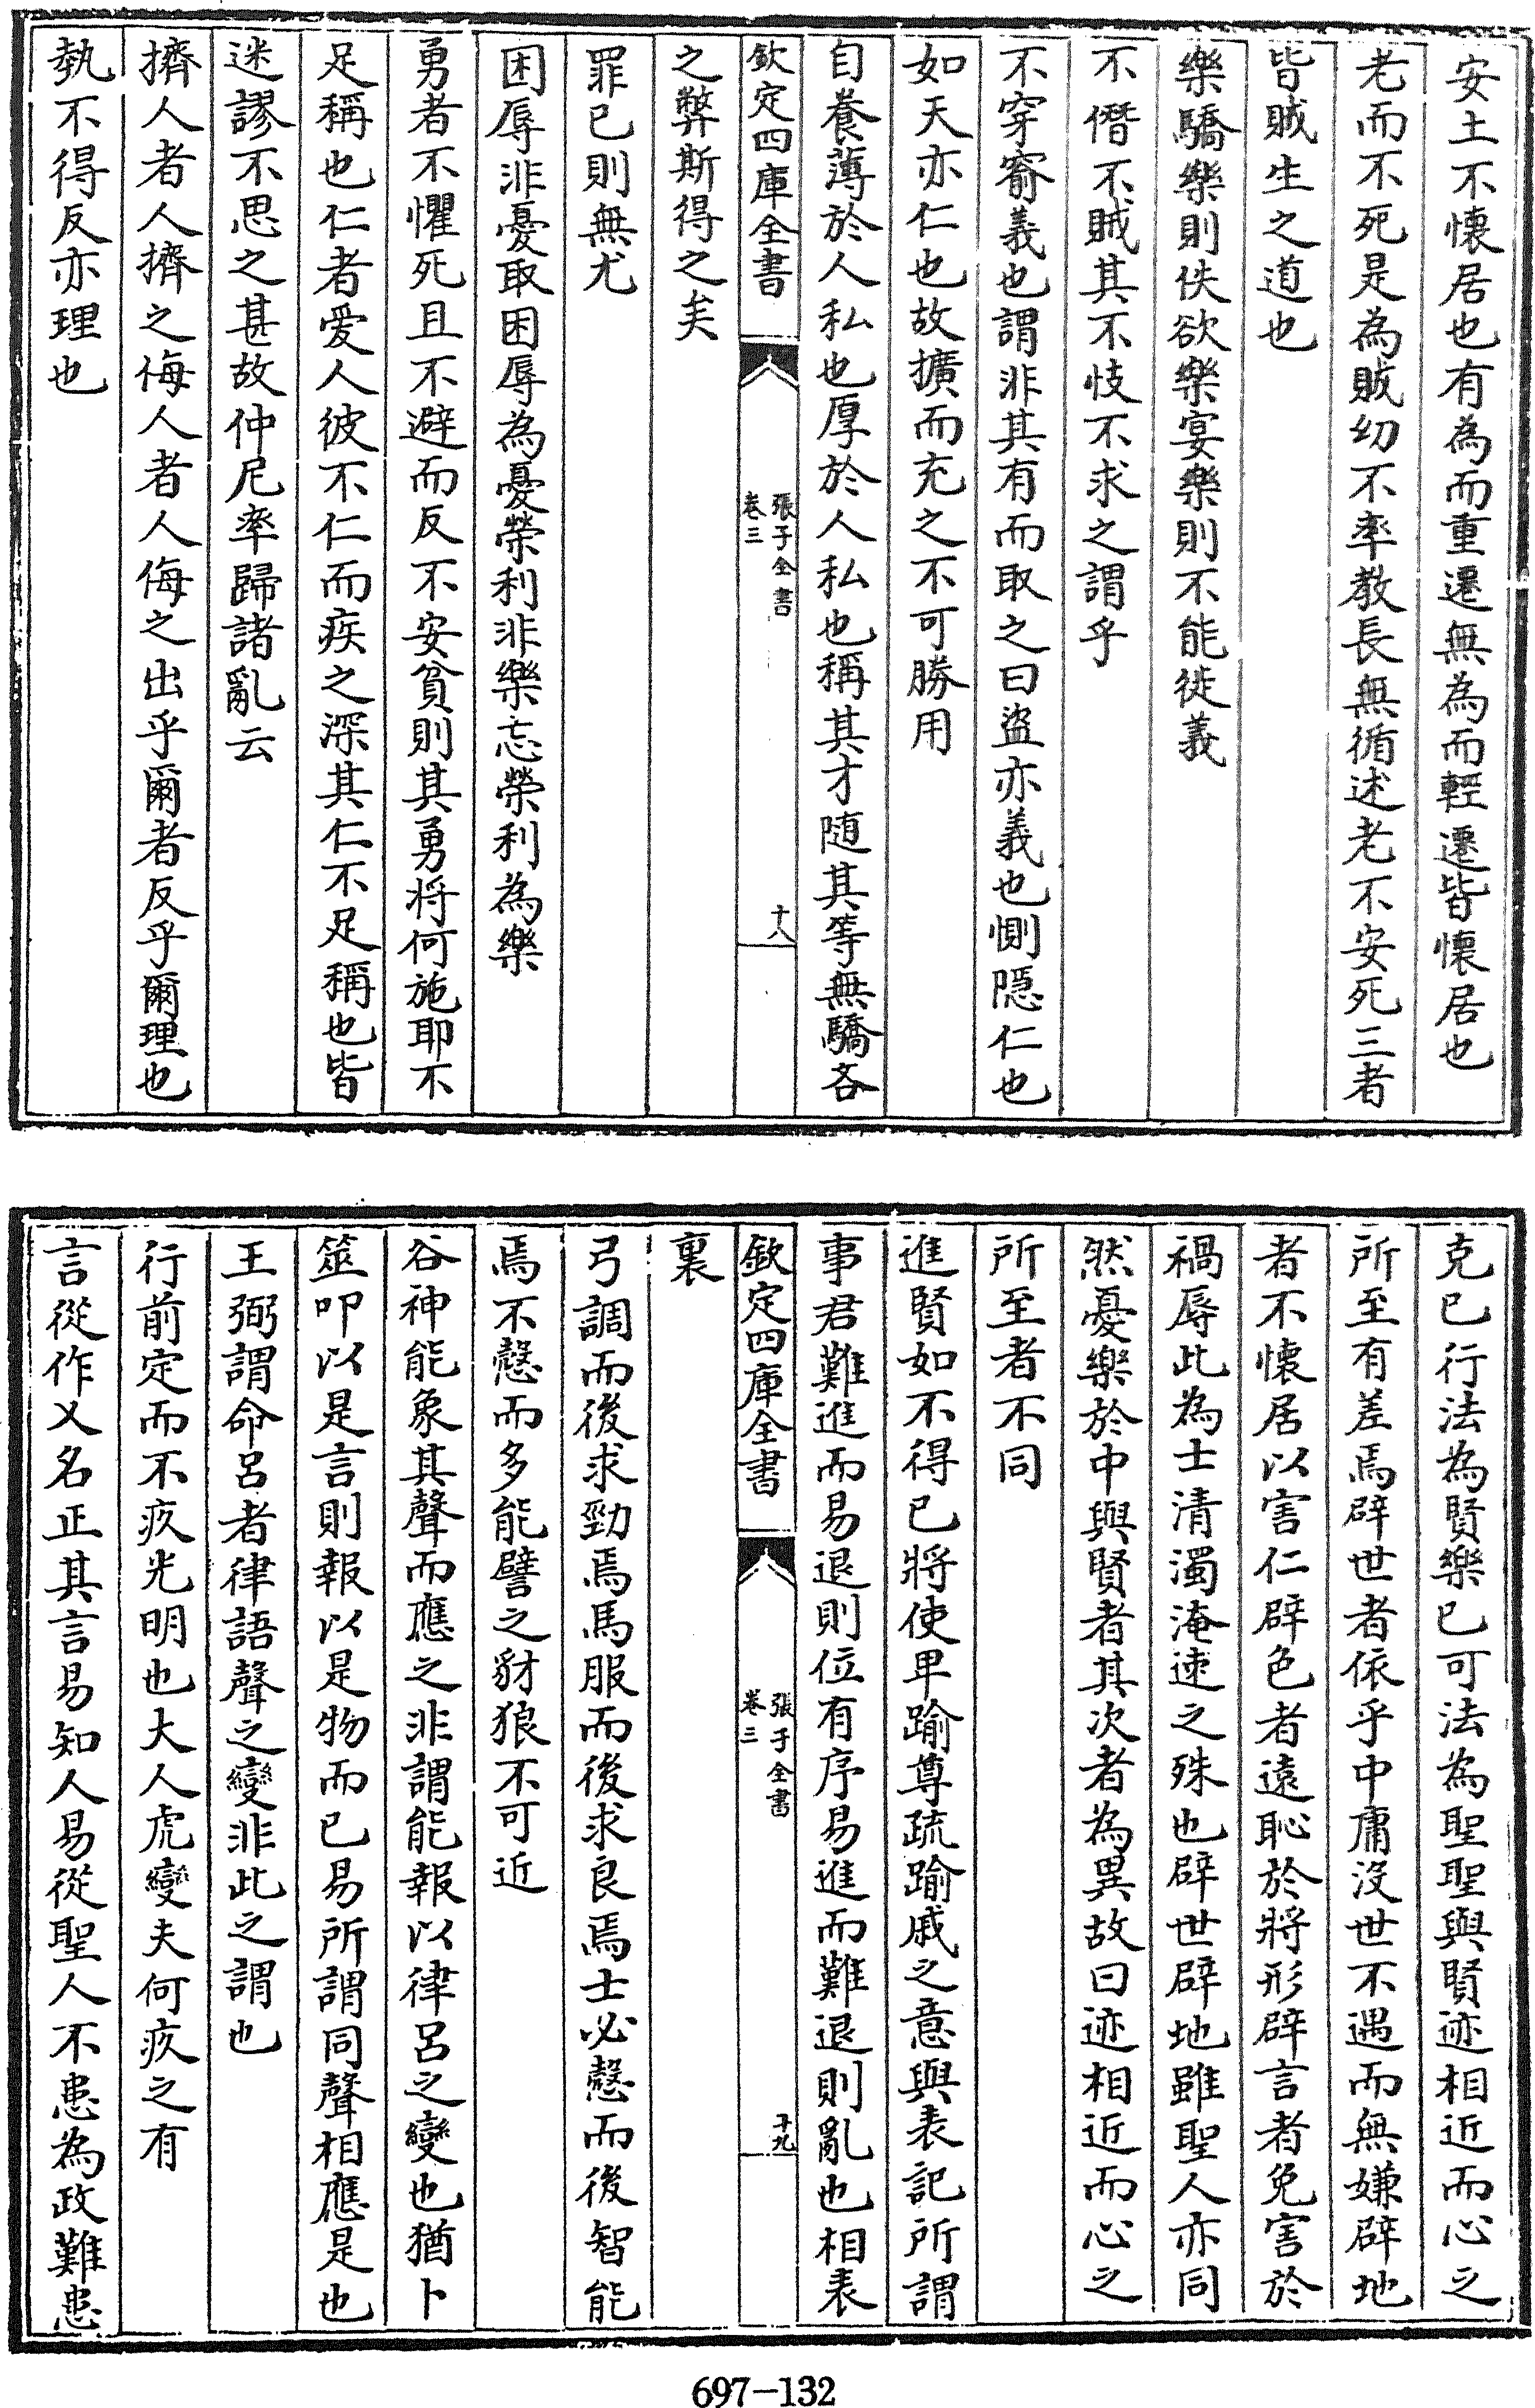 安土不懷居也有為而重遷無為而輕遷皆懷居也
老而不死是為賊幼不率教長無循述老不安死三者
皆賊生之道也
樂驕樂則佚欲樂宴樂則不能徙義
不僭不賊其不忮不求之謂乎
不穿窬義也謂非其有而取之曰盜亦義也惻隠仁也
如天亦仁也故擴而充之不可勝用
自養薄於人私也厚於人私也稱其才随其等無驕吝
欽定四庫全書
張子全書
卷三
十八
之弊斯得之矣
罪已則無尤
困辱非憂取困辱為憂榮利非樂忘榮利為樂
勇者不懼死且不避而反不安貧則其勇將何施耶不
足稱也仁者爱人彼不仁而疾之深其仁不足稱也皆
迷謬不思之甚故仲尼率歸諸亂云
擠人者人擠之侮人者人侮之出乎爾者反乎爾理也
埶不得反亦理也
克已行法為賢樂已可法為聖聖與賢迹相近而心之
所至有差焉辟世者依乎中庸沒世不遇而無嫌辟地
者不懷居以害仁辟色者遠恥於將形辟言者免害於
禍辱此為士清濁淹速之殊也辟世辟地雖聖人亦同
然憂樂於中與賢者其次者為異故曰迹相近而心之
所至者不同
進賢如不得已將使卑踰尊疏踰戚之意與表記所謂
事君難進而易退則位有序易進而難退則亂也相表
欽定四庫全書
張子全書
卷三
十九
裏
弓調而後求勁焉馬服而後求良焉士必慤而後智能
焉不慤而多能譬之豺狼不可近
谷神能象其聲而應之非謂能報以律呂之變也猶卜
筮叩以是言則報以是物而已易所謂同聲相應是也
王弼謂命呂者律語聲之變非此之謂也
行前定而不疚光明也大人虎變夫何疚之有
言從作乂名正其言易知人易從聖人不患為政難患
697-132